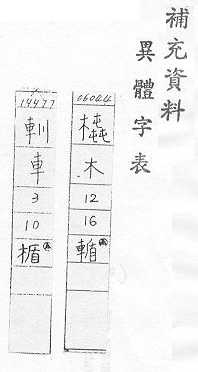 補充資料
異體字表
木
12
16
輴
14477
車
3
10
楯